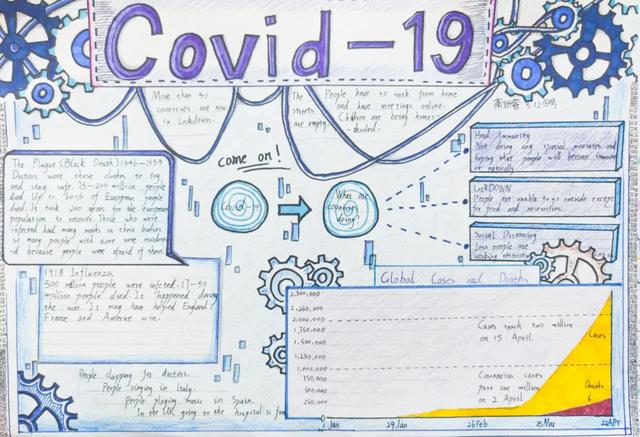 Covid-19
More than 40
countries are now
in Lockdown.
The
streets
are empty.
People have to work from home
and have meetings online.
Children are being home-
schooled.
5.12
come on!
Covid-19
What are
countries
doing?
Herd Immunity
Not doing any special measures and
hoping that people will become immune
naturally.
LOCKDOWN
People are unable to go outside except
for food and necessities.
Social Distancing
Less people are
working
The Plague (Black Death) 1346-1353
Doctors wore these clothes to try
and stay safe. 75-200 million people
died. Up to of European people
died. It took 200 years for the european
population to recover. Those who were
infected had many marks on their bodies
so many people with acne were murdered
because people were afraid of them.
1918 Influenza
500 million people were infected. 17-50
million people died. It happened during
the war. It may have helped England,
France and win.
People clapping for doctors.
People singing in Italy.
People playing music in Spain.
In the UK going to the hospital is
Global Cases and Deaths
2,500,000
2,250,000
2,000,000
1,750,000
1,500,000
1,250,000
1,000,000
750,000
500,000
250,000
Cases reach two million
on 15 April
Coronavirus cases
pass one million
on 2 April
Cases
Deaths
1 Jan
29 Jan
26 Feb
25 Mar
22 Apr